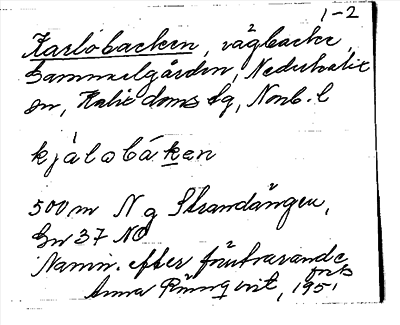 1-2
Karlobacken, vägbacke,
Gammelgården, Nederkalix
sn, Kalix doms sg, Norrb. l
kjàlobáken
500 m N g Strandängen,
Gw 37 NO
Namn. efter förutvarande
Anna Rönnqvist, 1951